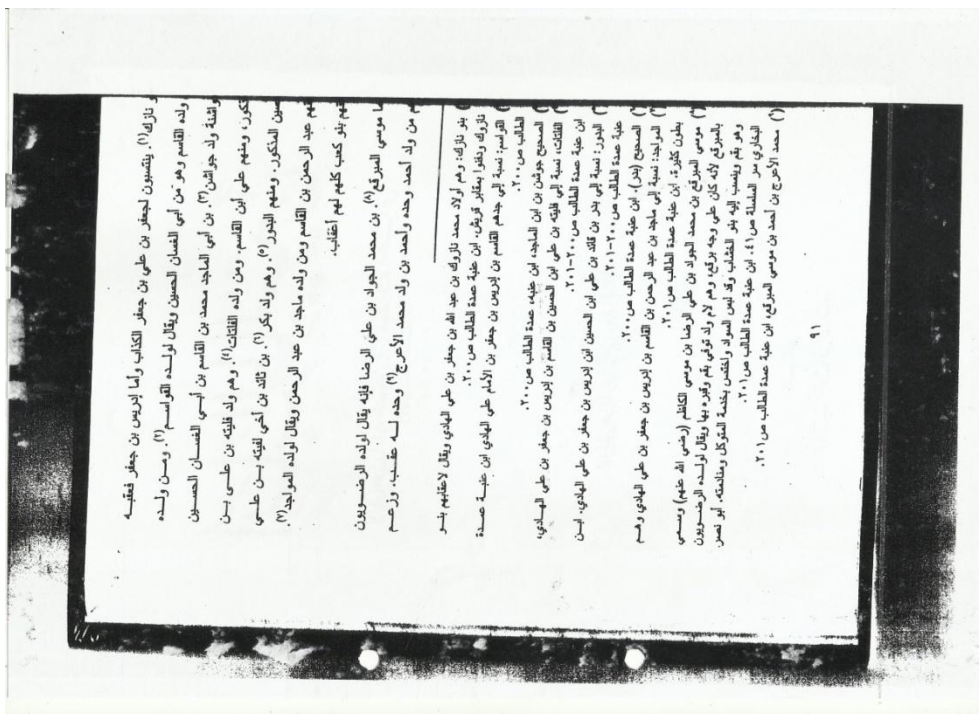 و نازك(١). ينتسبون لجعفر بن علي بن جعفر الكذاب وأما إدريس بن جعفر فعقبه
ولده القاسم وهو من أبي الغسان الحسين ويقال لولده القواسم(٢). ومن ولده
واشنة ولد جواشن(٣). بن أبي الماجد محمد بن القاسم بن أبي الغسان الحسين
تكون، ومنهم علي أبن القاسم. ومن ولده الفلتات(٤). وهم ولد فليته بن علي بن
سين المذكور. ومنهم البدور(٥). وهم ولد بكر(٦) بن ثائد بن أخي لفيته بن علي
نهم عبد الرحمن بن القاسم ومن ولده ماجد بن عبد الرحمن ويقال لولده المواجد(٧).
نهم بنو كعب كلهم لهم أعقاب.
ما موسى المبرقع(٨). بن محمد الجواد بن علي الرضا فإنه يقال لولده الرضويون
م من ولد أحمد وحده وأحمد بن ولد محمد الأعرج(٩) وحده له عقب، وزعم
) بنو نازك: وهم أولاد محمد نازوك بن عبد الله بن جعفر بن علي الهادي ويقال لأعقابهم بنو
نازوك ودفنوا بمقابر قريش. ابن عنبة عمدة الطالب ص٢٠٠.
) القواسم: نسبة إلى جدهم القاسم بن إدريس بن جعفر بن الأمام علي الهادي ابن عنبة عمدة
الطالب ص٢٠٠.
) الصحيح جوشن بن ابن الماجد، ابن عنبه، عمدة الطالب ص٢٠٠.
) الفلتات، نسبة إلى فليته بن علي ابن الحسين بن القاسم بن إدريس بن جعفر بن علي الهادي،
ابن عنبة عمدة الطالب ص٢٠٠-٢٠١.
) البدور: نسبة إلى بدر بن قائد بن علي ابن الحسين ابن إدريس بن جعفر بن علي الهادي، ابن
عنبة عمدة الطالب ص٢٠٠-٢٠١.
) الصحيح (بدر). ابن عنبة عمدة الطالب ص٢٠٠.
) المواجد: نسبة إلى ماجد بن عبد الرحمن بن القاسم بن إدريس بن جعفر بن علي الهادي وهم
بطون كثيرة، ابن عنبة عمدة الطالب ص٢٠١.
) موسى المبرقع بن محمد الجواد بن علي الرضا بن موسى الكاظم (رضي الله عنهم) وسمي
بالمبرقع لأنه كان على وجه برقع، وهم لام ولد توفي بقم وقبره بها ويقال لولده الرضويون
وهو بقم وينسب إليه بنو الخشاب وقد لبس السواد واختص بخدمة المتوكل ومنادمته. أبو نصر
البخاري سر السلسلة ص٤١، ابن عنبة عمدة الطالب ص٢٠١.
) محمد الأعرج بن أحمد بن موسى المبرقع، ابن عنبة عمدة الطالب ص٢٠١.
٩١